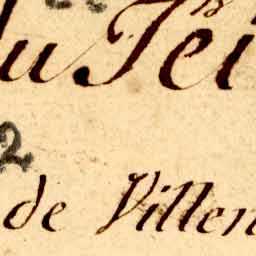 du Tei
2
de Villen